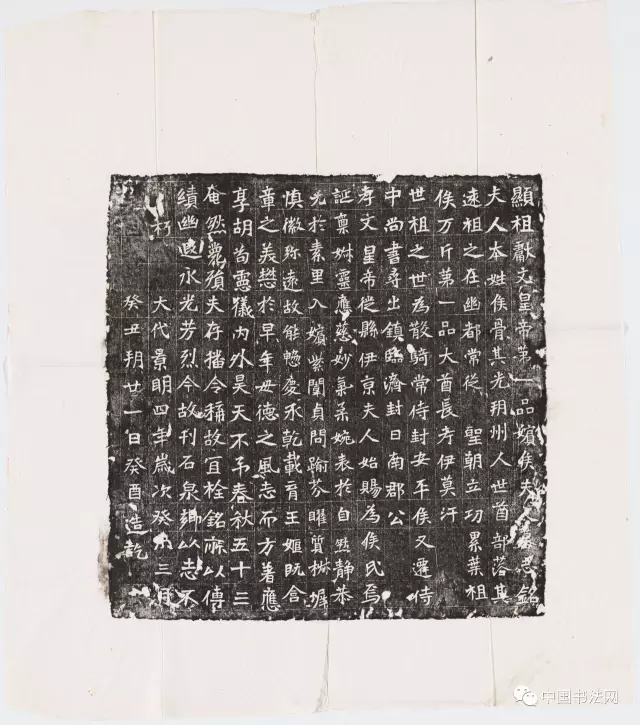 顯祖獻文皇帝第一品嬪侯夫人墓志銘
夫人本姓侯骨其先朔州人世酋部落其
遠祖之在幽都常從 聖朝立功累葉祖
俟万斤第一品大酋長考伊莫汗
世祖之世為散騎常侍封安平侯又遷侍
中尚書尋出鎮臨濟封日南郡公
孝文皇帝徙縣伊京夫人始賜為侯氏焉
誕稟姝靈應慈妙氣柔婉表於自然靜恭
光於素里入嬪紫闈貞問踰芬曜質椒墀
慎徽弥遠故能憁慶承乾載育王姬既含
章之美懋於早年毋德之風志而方著應
享胡苟靈儀內外昊天不予春秋五十三
奄然薨殞夫存播令稱故宜栓銘以傳
績幽永光芳烈今故刊石泉鄉以志不
朽 大代景明四年歲次癸未三月
癸丑朔廿一日癸酉造訖
中国书法网